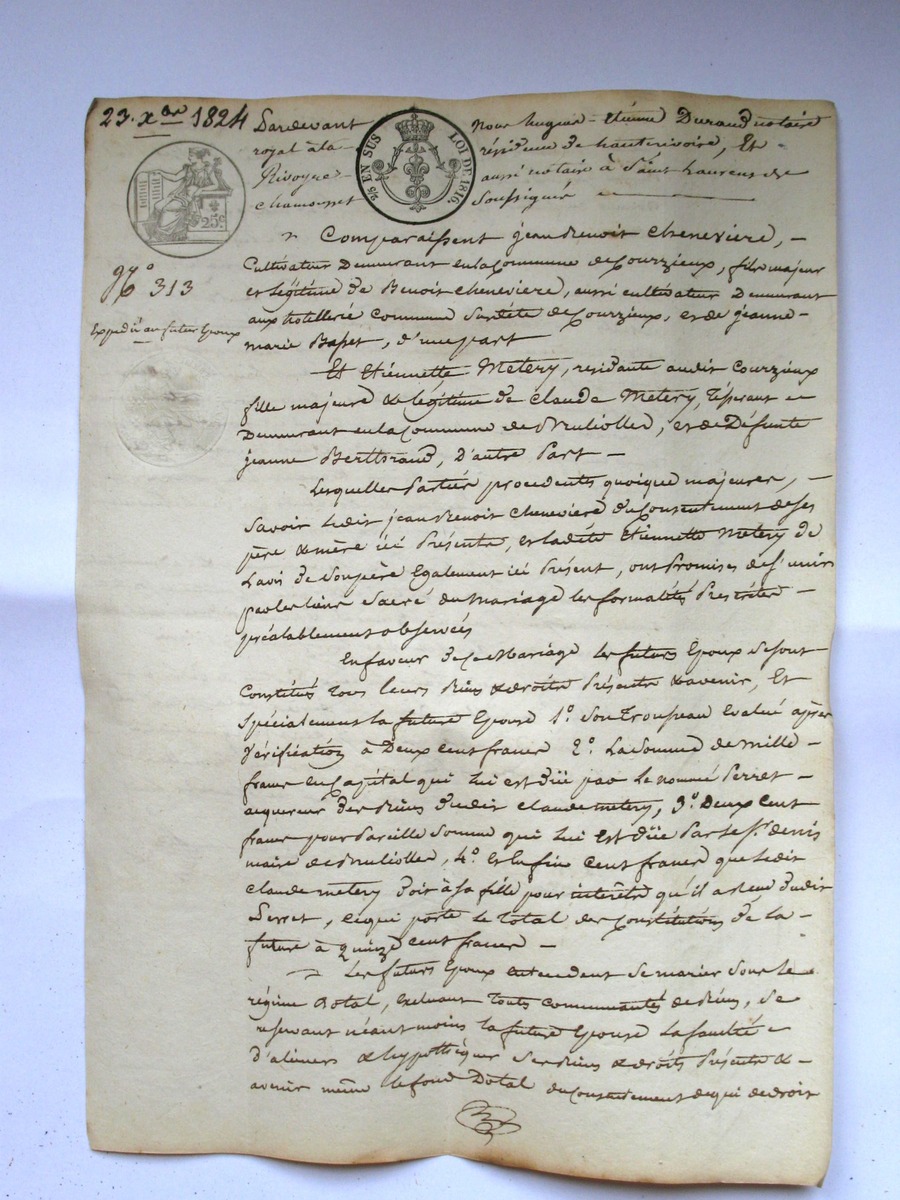 23. xbre 1824
Pardevant Nous hugues-Etienne Durand notaire
royal à la résidence de hauterivoire, Et
Rivoyre aussi notaire à Saint Laurent de
chamousset Soussigné
2/5 EN SUS LOI DE 1816.
25c
No 313
Expédié au futur Epoux
Comparaissent jean Benoit Chenevière,
Cultivateur Demeurant en la Commune de Courzieux, fils majeur
et légitime de Benoit Chenevière, aussi cultivateur Demeurant
aux hotellerie Commune Susdite de Courzieux, et de jeanne-
marie Basset, d'une part
Et Etiennette Metery, residante audit Courzieux
fille majeure & légitime de Claude Metery, Tisserant
Demeurant en la Commune de Brulioller, et de Défunte
jeanne Berthraud, D'autre Part
Lesquelles Parties procedents quoique majeures,
Savoir Ledit jean Benoit Chenevière du Consentement de ses
père & mère ici Présents, et ladite Etiennette Metery de
L'avis de Son père Egalement ici Présent, ont Promises de s'unir
par les liens Sacré du Mariage les formalités Prescrites
préalablement observées
En faveur de Ce Mariage les futurs Epoux Se Sont
Constitués Tous leurs Biens & droits Présents & avenir, Et
Spécialement la future Epouse 1o. Son Trousseau Evalué après
Vérification à Deux cent francs 2o. La Somme de Mille
francs en Capital qui Lui est Düe par le nommé Perret
acquereur des Biens dudit Claude Metery, 3o. Deux Cent
francs pour Pareille Somme qui Lui Est Düe Par le Sr. denis
maire de Brulioller, 4o. Et Enfin Cent francs que Ledit
Claude Metery doit à Sa fille pour intérêts qu'il a reçu dudit
Perret, Ce qui porte le Total des Constitutions de la
future à Quinze cent francs
Les futurs Epoux entendent Se marier Sous le
régime Dotal, Excluant Toute Communauté de Biens, Se
reservant néant moins la future Epouse La faculté
D'aliéner & hypothèquer Ses Biens & droits Présents &
avenir même le fond Dotal du Consentement de qui de droit